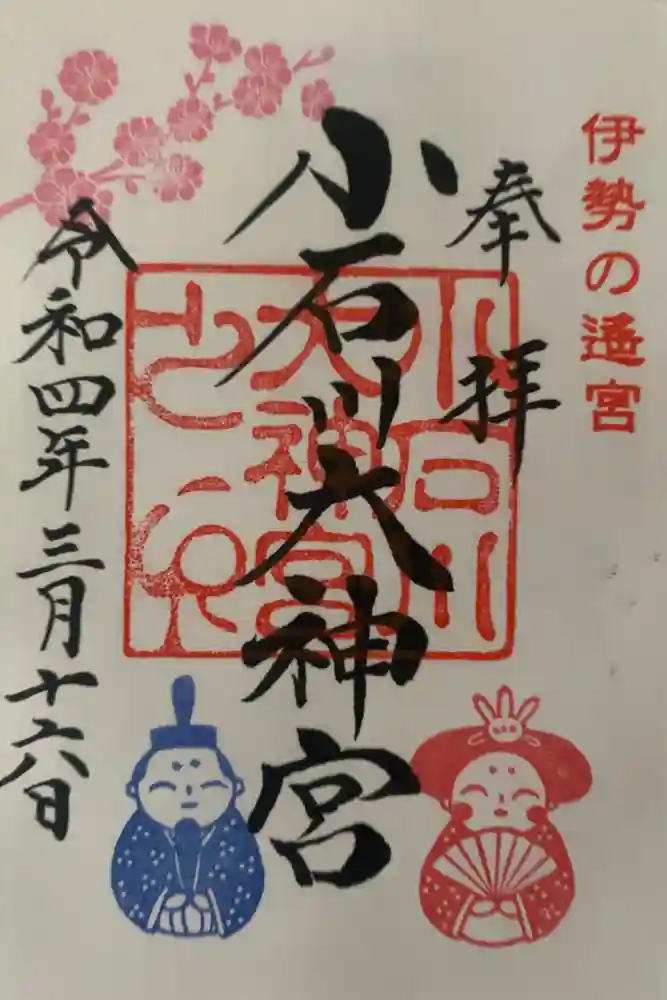 伊勢の遙宮
奉拝
小石川大神宮
小石川
大神宮
之印
令和四年三月十六日